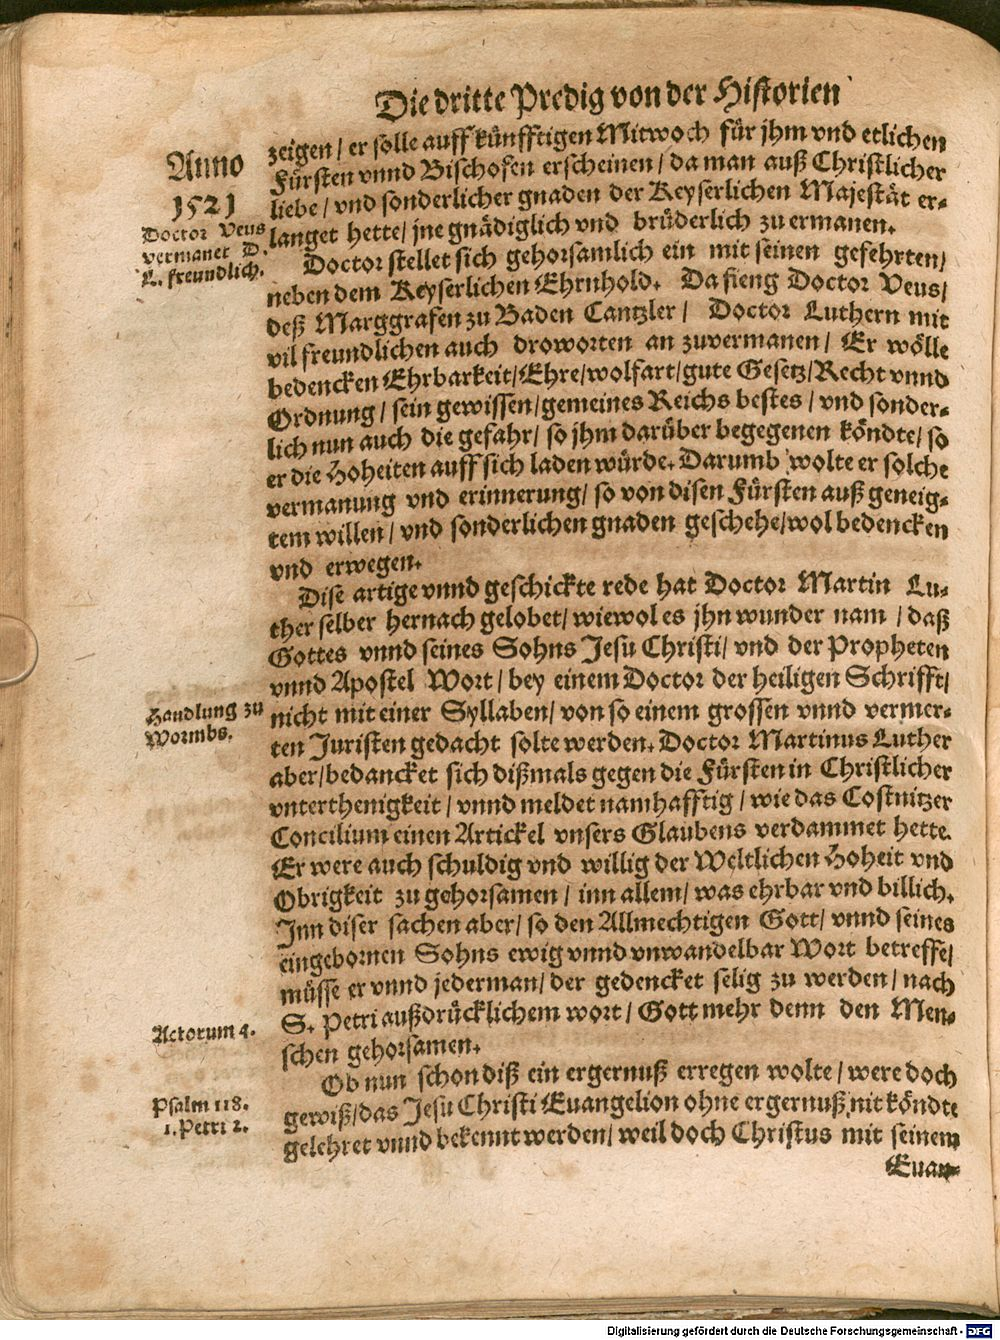 Die dritte Predig von der Historien
zeigen / er solle auff künfftigen Mitwoch für jhm vnd etlichen
Fürsten vnnd Bischofen erscheinen / da man auß Christlicher
liebe / vnd sonderlicher gnaden der Keyserlichen Majestät er-
langet hette / jne gnädiglich vnd brüderlich zu ermanen.
Anno
1521
Doctor Veus
vermanet D.
L. freundlich.
Doctor stellet sich gehorsamlich ein mit seinen gefehrten /
neben dem Keyserlichen Ehrnhold. Da fieng Doctor Veus /
deß Marggrafen zu Baden Cantzler / Doctor Luthern mit
vil freundlichen auch droworten an zuvermanen / Er wölle
bedencken Ehrbarkeit / Ehre / wolfart / gute Gesetz / Recht vnnd
Ordnung / sein gewissen / gemeines Reichs bestes / vnd sonder-
lich nun auch die gefahr / so jhm darüber begegenen köndte / so
er die Hoheiten auff sich laden würde. Darumb wolte er solche
vermanung vnd erinnerung / so von disen Fürsten auß geneig-
tem willen / vnd sonderlichen gnaden geschehe / wol bedencken
vnd erwegen.
Dise artige vnnd geschickte rede hat Doctor Martin Lu-
ther selber hernach gelobet / wiewol es jhn wunder nam / daß
Gottes vnnd seines Sohns Jesu Christi / vnd der Propheten
vnnd Apostel Wort / bey einem Doctor der heiligen Schrifft /
nicht mit einer Syllaben / von so einem grossen vnnd vermer-
ten Juristen gedacht solte werden. Doctor Martinus Luther
aber / bedancket sich dißmals gegen die Fürsten in Christlicher
vnterthenigkeit / vnnd meldet namhafftig / wie das Costnitzer
Concilium einen Artickel vnsers Glaubens verdammet hette.
Er were auch schuldig vnd willig der Weltlichen Hoheit vnd
Obrigkeit zu gehorsamen / inn allem / was ehrbar vnd billich.
Inn diser sachen aber / so den Allmechtigen Gott / vnnd seines
eingebornen Sohns ewig vnnd vnwandelbar Wort betreffe /
müsse er vnnd jederman / der gedencket selig zu werden / nach
S. Petri außdrücklichem wort / Gott mehr denn den Men-
schen gehorsamen.
Handlung zu
Wormbs.
Actorum 4.
Ob nun schon diß ein ergernuß erregen wolte / were doch
gewiß / das Jesu Christi Euangelion ohne ergernuß nit köndte
gelehret vnnd bekennt werden / weil doch Christus mit seinem
Psalm 118.
1. Petri 2.
Euan-
Digitalisierung gefördert durch die Deutsche Forschungsgemeinschaft - DFG